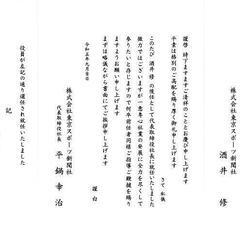 謹啓 時下ますますご清祥のこととお慶び申し上げます
平素は格別のご高配を賜り厚く御礼申し上げます
さて 私儀
このたび 酒井 修 の後任として代表取締役社長に就任いたしました
微力ではございますが一意専心社業の発展に全力を尽くして
参りたいと存じますので何卒前任者同様ご指導ご鞭撻を賜り
ますようお願い申し上げます
まずは略儀ながら書面にてご挨拶申し上げます
謹白
株式会社東京スポーツ新聞社
代表取締役社長 平鍋幸治
株式会社東京スポーツ新聞社
酒井 修
記
役員が左記の通り選任され就任いたしました